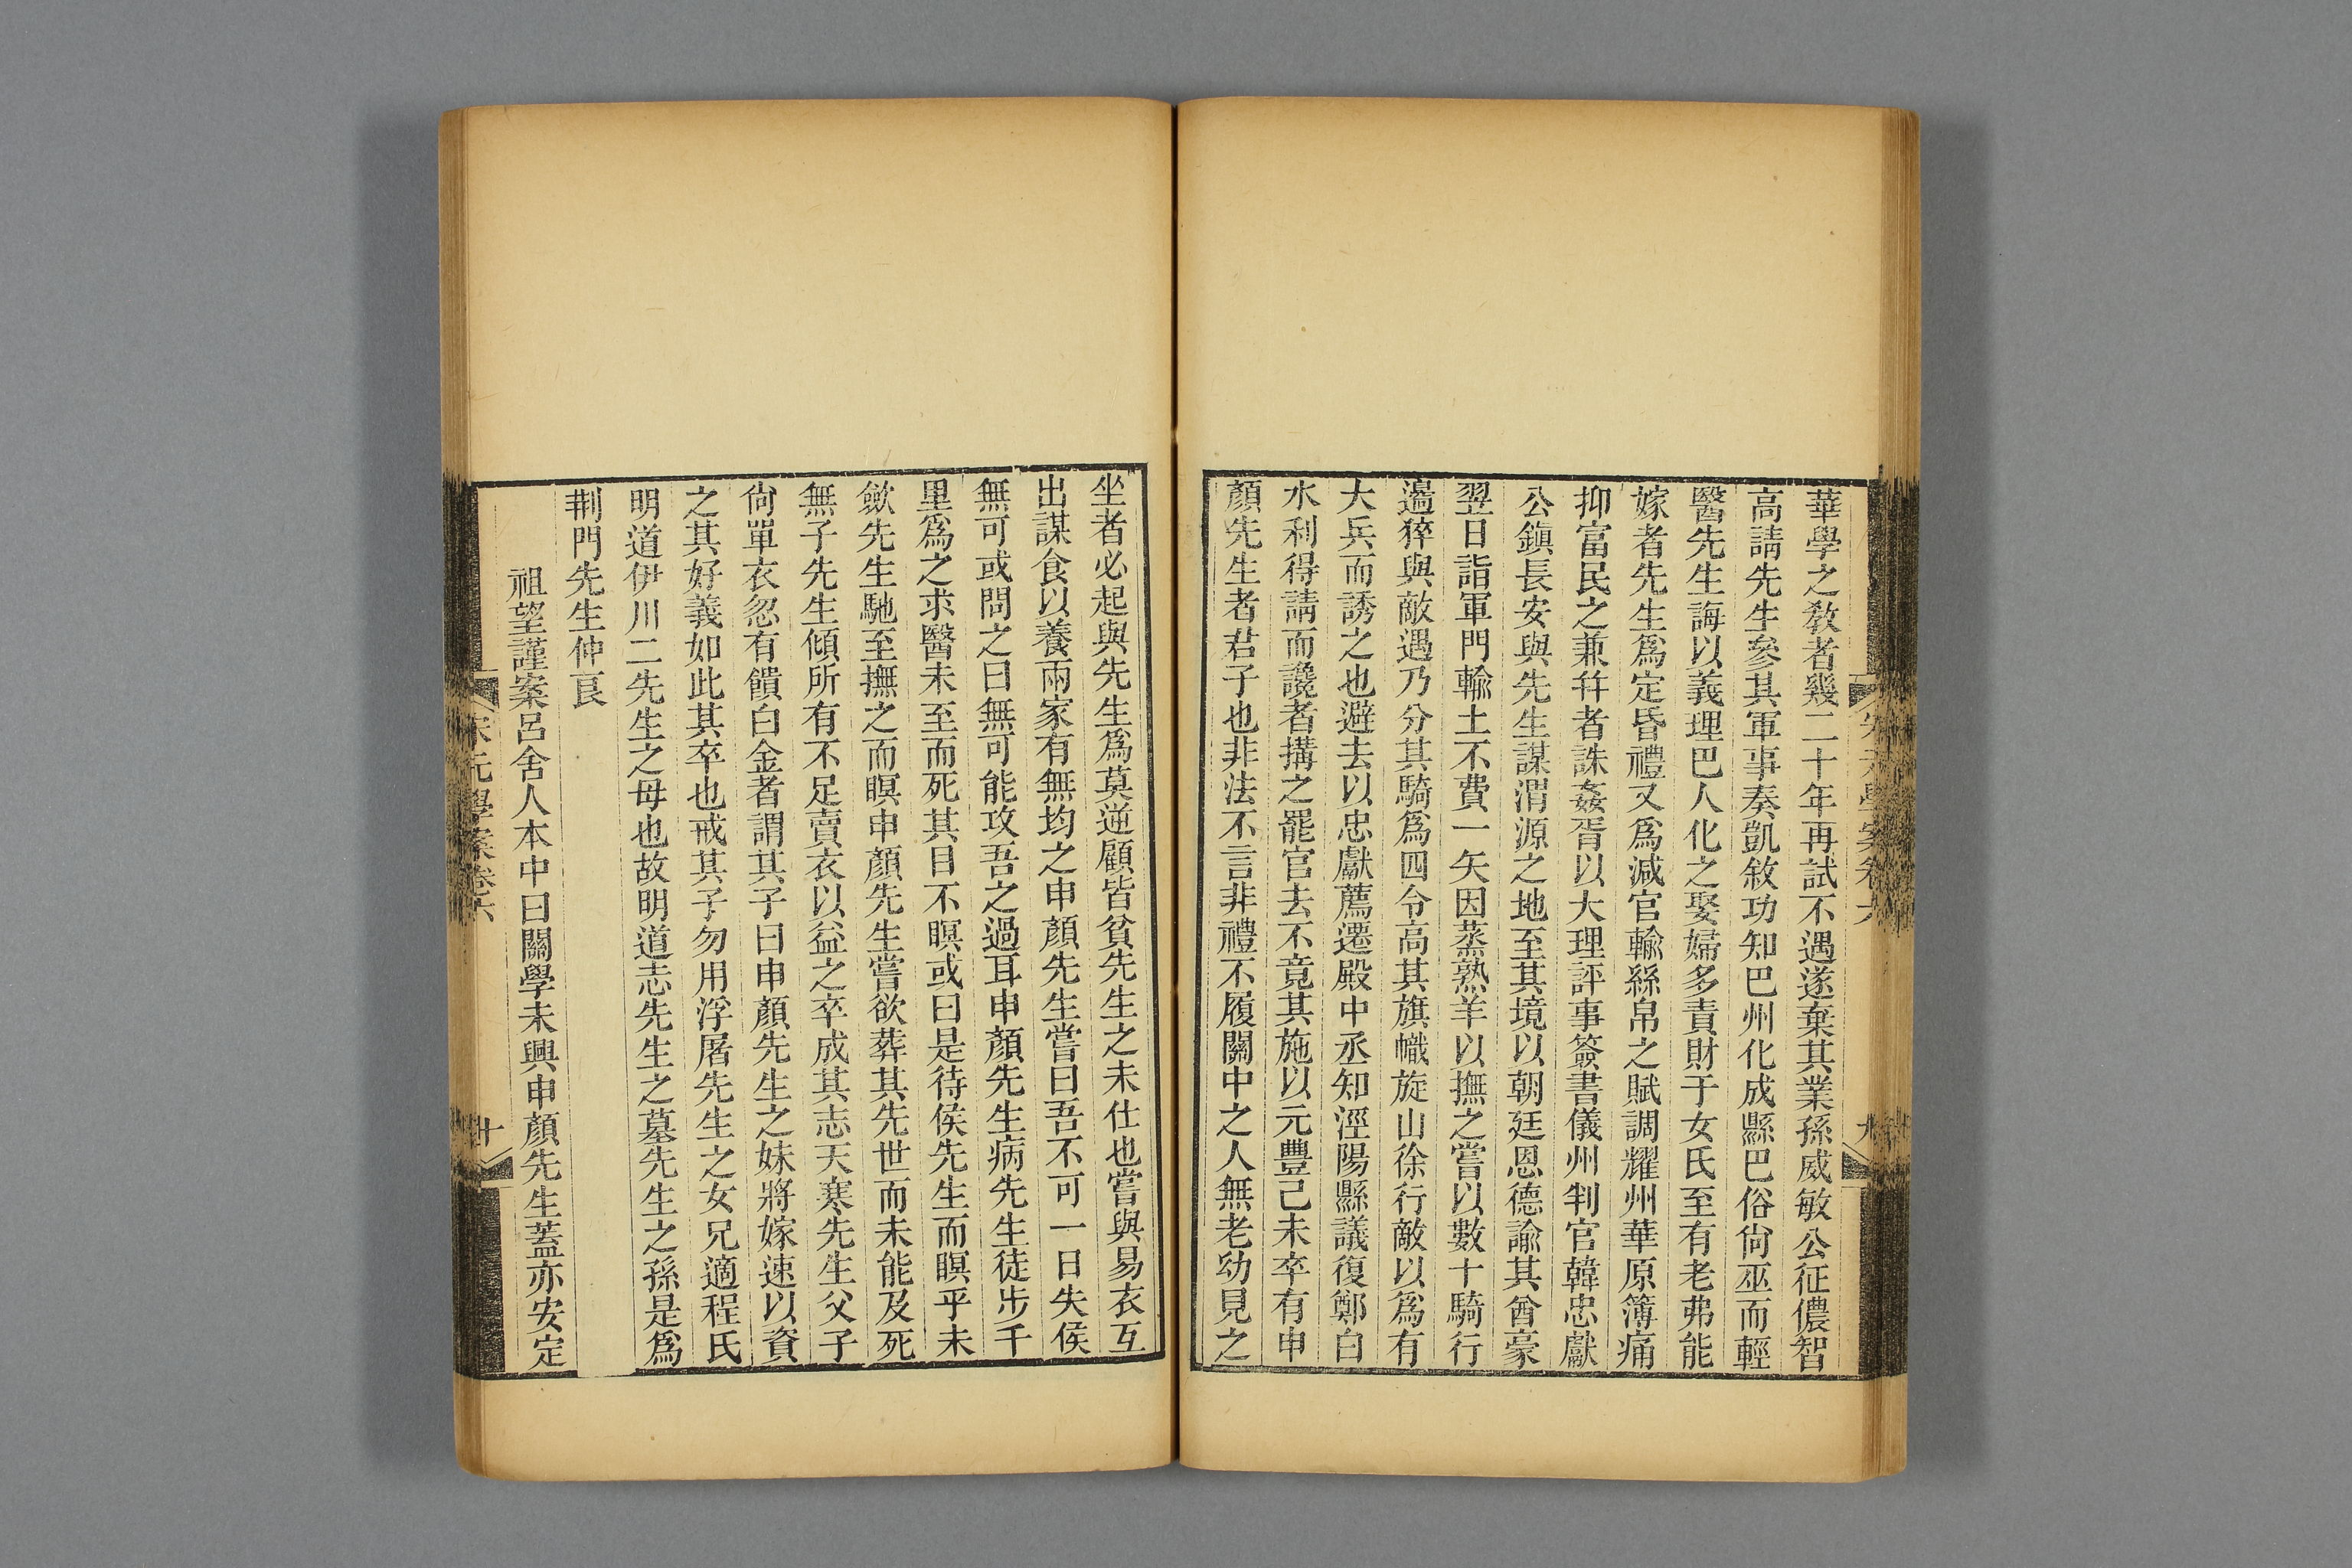 華學之敎者幾二十年再試不遇遂棄其業孫威敏公征儂智
高請先生參其軍事奏凱敘功知巴州化成縣巴俗尙巫而輕
醫先生誨以義理巴人化之娶婦多責財于女氏至有老弗能
嫁者先生爲定昏禮又爲減官輸絲帛之賦調耀州華原簿痛
抑富民之兼幷者誅姦胥以大理評事簽書儀州判官韓忠獻
公鎭長安與先生謀渭源之地至其境以朝廷恩德諭其酋豪
翌日詣軍門輸土不費一矢因蒸熟羊以撫之嘗以數十騎行
邊猝與敵遇乃分其騎爲四令高其旗幟旋山徐行敵以爲有
大兵而誘之也避去以忠獻薦遷殿中丞知涇陽縣議復鄭白
水利得請而讒者搆之罷官去不竟其施以元豐己未卒有申
顏先生者君子也非法不言非禮不履關中之人無老幼見之
坐者必起與先生爲莫逆顧皆貧先生之未仕也嘗與易衣互
出謀食以養兩家有無均之申顏先生嘗曰吾不可一日失侯
無可或問之曰無可能攻吾之過耳申顏先生病先生徒步千
里爲之求醫未至而死其目不瞑或曰是待侯先生而瞑乎未
斂先生馳至撫之而瞑申顏先生嘗欲葬其先世而未能及死
無子先生傾所有不足賣衣以益之卒成其志天寒先生父子
尙單衣忽有饋白金者謂其子曰申顏先生之妹將嫁速以資
之其好義如此其卒也戒其子勿用浮屠先生之女兄適程氏
明道伊川二先生之母也故明道志先生之墓先生之孫是爲
荆門先生仲良
祖望謹案呂舍人本中曰關學未興申顏先生蓋亦安定
宋元學案卷六
十